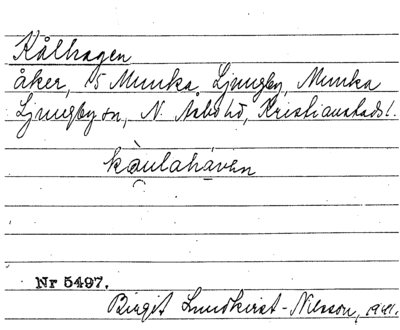 Kålhagen
åker, 15 Munka Ljungby, Munka
Ljungby sn, N. Åsbo hd, Kristianstads l.
kàulaháven
Nr 5497.
Birgit Lundkvist-Nilsson, 1941.